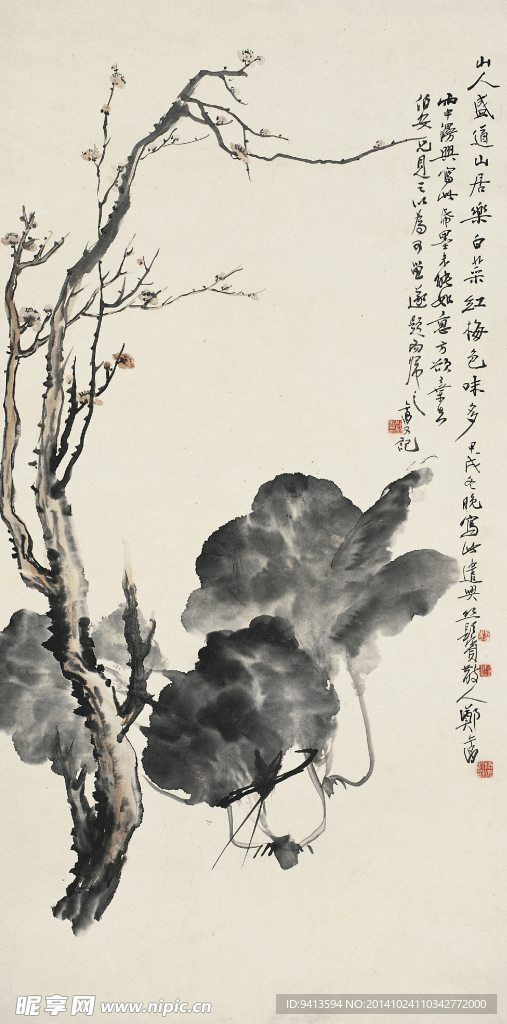 山人盛道山居樂白菜紅梅色味多甲戌冬晚寫此遣興 髯散人鄭
雨中漫興寫此 墨未能如意方欲棄去
伯安兄見之以為可望遂題而歸之
記
昵享网 www.nipic.cn
ID:9413594 NO:20141024110342772000